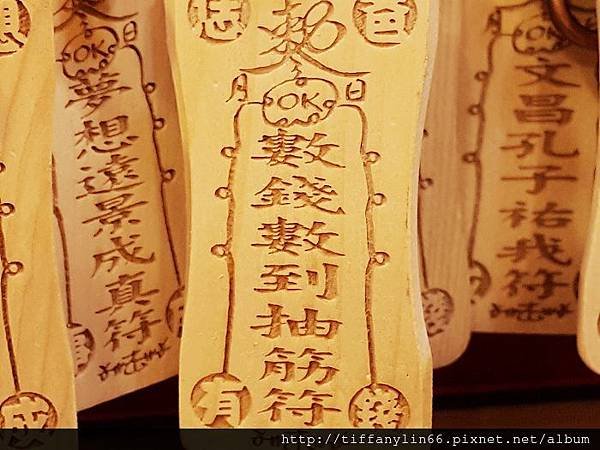 想
成
OK
夢想遠景成真符
志 爸
OK
月 日
數錢數到抽筋符
有 錢
OK
文昌孔子祐我符
http://tiffanylin66.pixnet.net/album